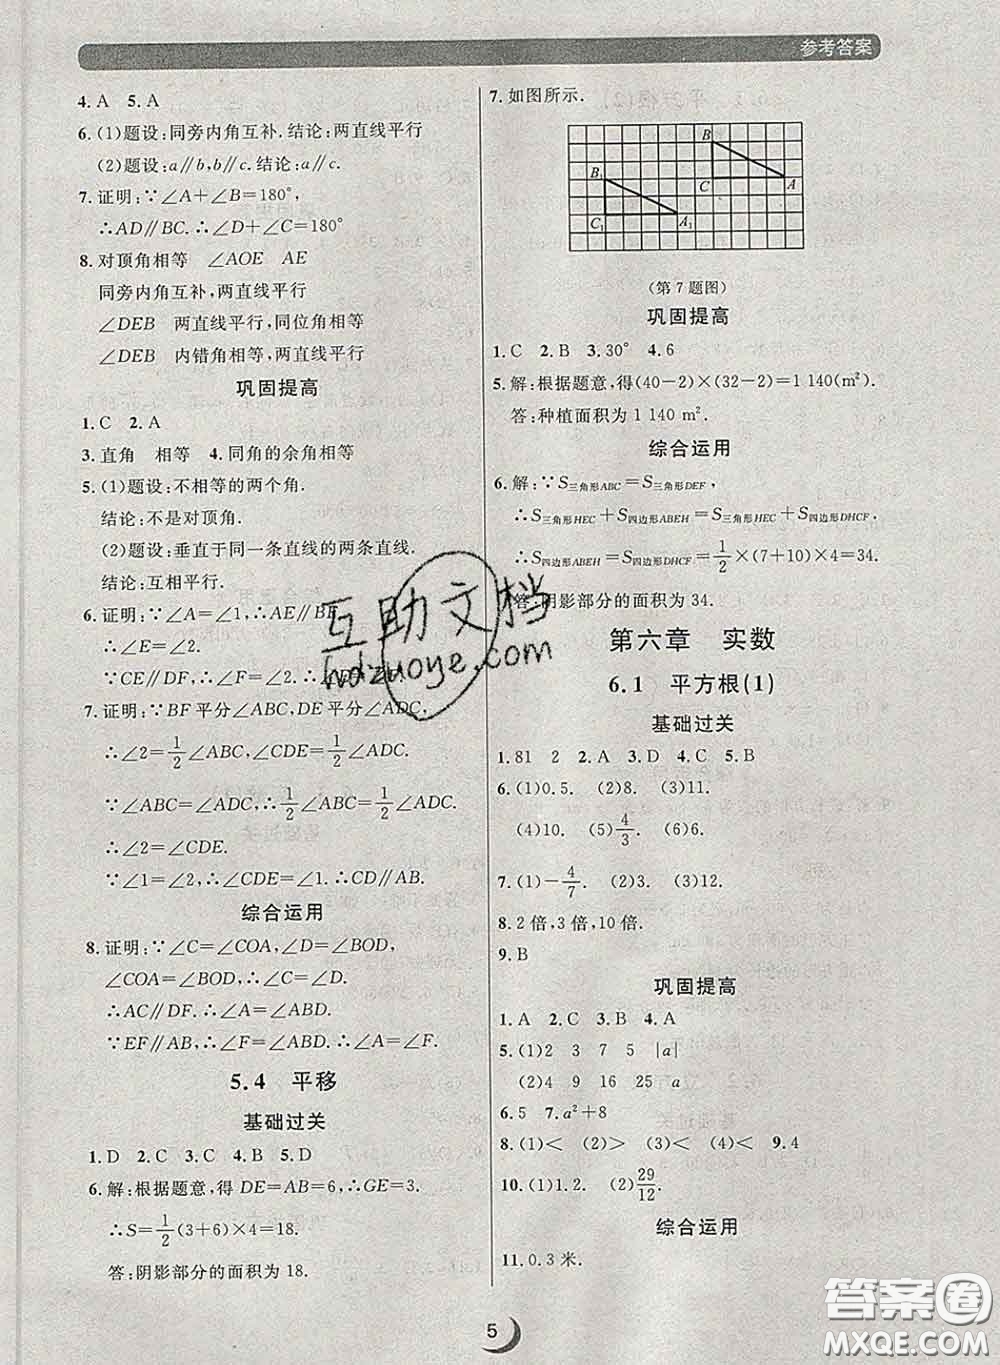 参考答案
4.A 5.A
6.(1)题设:同旁内角互补.结论:两直线平行
(2)题设:a∥b,b∥c.结论:a∥c.
7.证明:∵∠A+∠B=180°
∴AD∥BC.∴∠D+∠C=180°
8.对顶角相等 ∠AOE AE
同旁内角互补,两直线平行
∠DEB 两直线平行,同位角相等
∠DEB 内错角相等,两直线平行
巩固提高
1.C 2.A
3.直角 相等 4.同角的余角相等
5.(1)题设:不相等的两个角.
结论:不是对顶角.
(2)题设:垂直于同一条直线的两条直线.
结论:互相平行.
6.证明:∵∠A=∠1,∴AE∥BF.
∴∠E=∠2.
∵CE∥DF,∴∠F=∠2.∴∠E=∠F.
7.证明:∵BF平分∠ABC,DE平分∠ADC,
∴∠2=1/2∠ABC,∠CDE=1/2∠ADC.
∵∠ABC=∠ADC,∴1/2∠ABC=1/2∠ADC.
∴∠2=∠CDE.
∵∠1=∠2,∴∠CDE=∠1.∴CD∥AB.
综合运用
8.证明:∵∠C=∠COA,∠D=∠BOD,
∠COA=∠BOD,∴∠C=∠D.
∴AC∥DF.∴∠A=∠ABD.
∵EF∥AB,∴∠F=∠ABD.∴∠A=∠F.
5.4 平移
基础过关
1.D 2.C 3.C 4.B 5.D
6.解:根据题意,得DE=AB=6,∴GE=3.
∴S=1/2(3+6)×4=18.
答:阴影部分的面积为18.
7.如图所示.
B
C
A
B₁
C₁
A₁
(第7题图)
巩固提高
1.C 2.B 3.30° 4.6
5.解:根据题意,得(40-2)×(32-2)=1 140(m²).
答:种植面积为1 140 m².
综合运用
6.解:∵S三角形ABC=S三角形DEF,
∴S三角形HEC+S四边形ABEH=S三角形HEC+S四边形DHCF.
S四边形ABEH=S四边形DHCF=1/2×(7+10)×4=34.
答:阴影部分的面积为34.
第六章 实数
6.1 平方根(1)
基础过关
1.81 2 2.A 3.D 4.C 5.B
6.(1)0.5. (2)8. (3)11.
(4)10. (5)4/3. (6)6.
7.(1)-4/7. (2)3. (3)12.
8.2倍,3倍,10倍.
9.B
巩固提高
1.A 2.C 3.B 4.A
5.(1)2 3 7 5 |a|
(2)4 9 16 25 a
6.5 7.a²+8
8.(1)< (2)> (3)< (4)< 9.4
10.(1)1.2. (2)29/12.
综合运用
11.0.3米.
5
互助文档
hdzuoye.com
答案圈
MXQE.COM